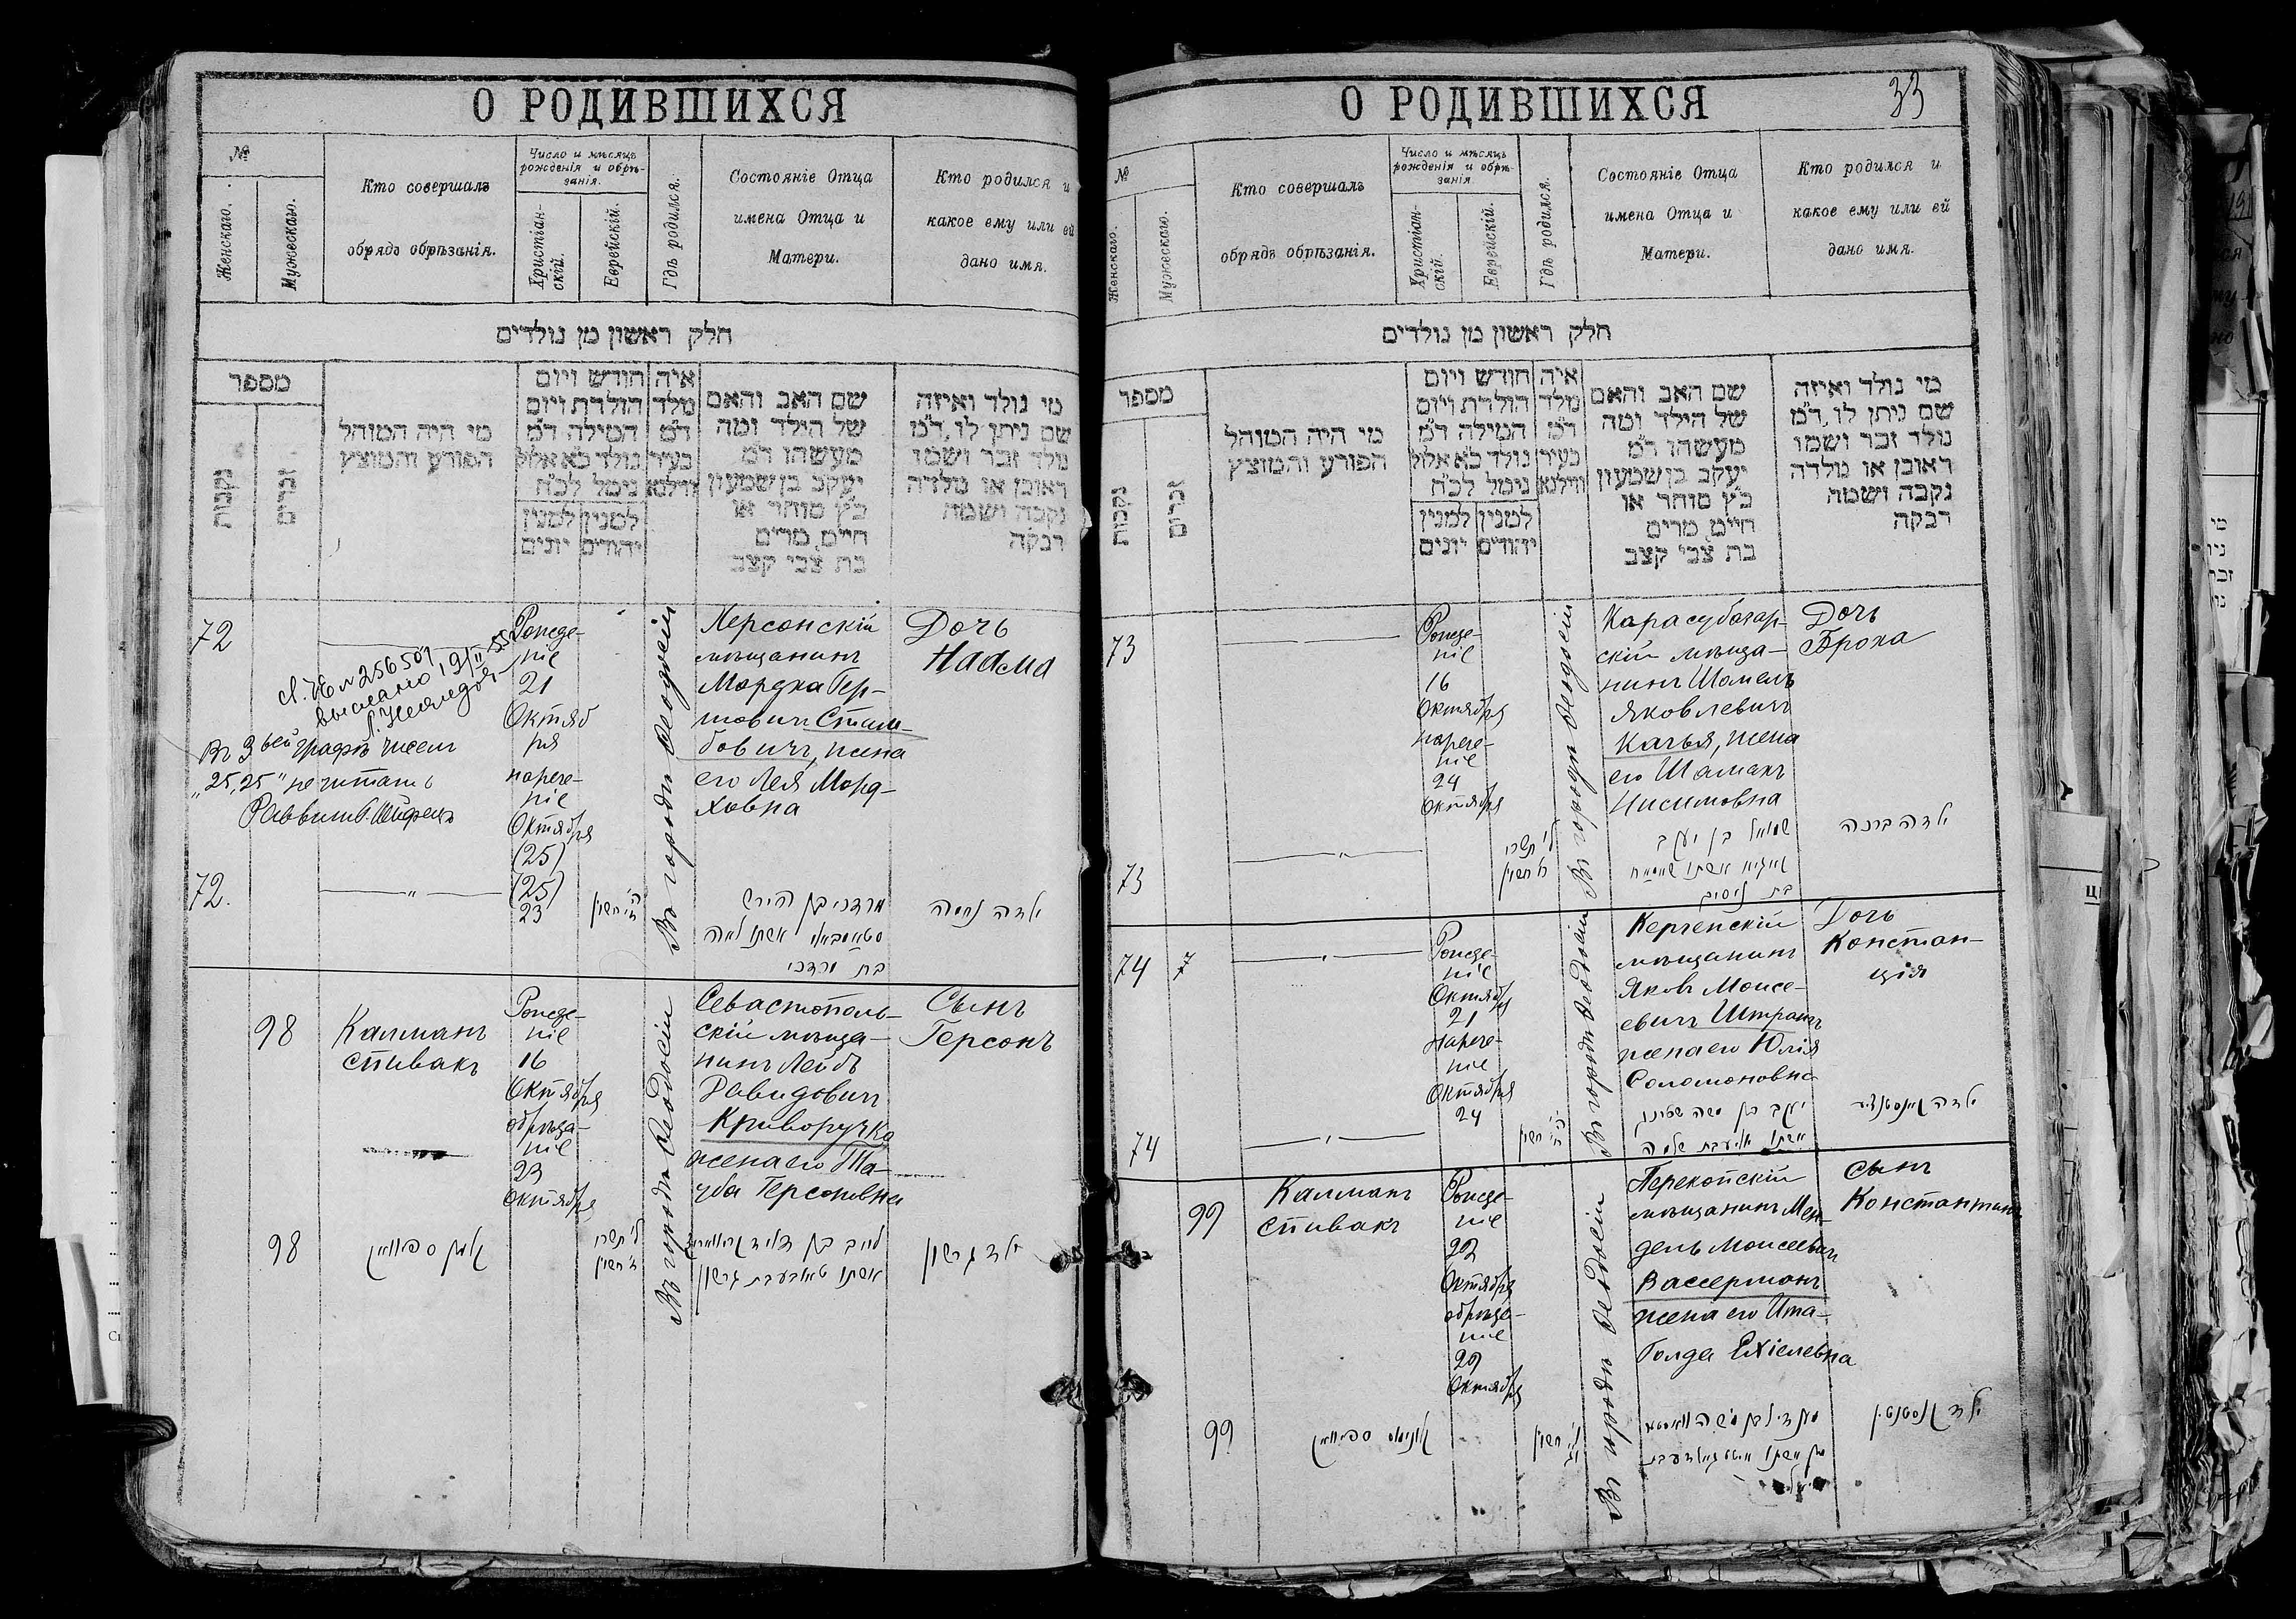 О РОДИВШИХСЯ
№
Женскаго.
Мужескаго.
Кто совершалъ
обрядъ обрѣзанія.
Число и мѣсяцъ
рожденія и обрѣ-
занія.
Христіан-
скій.
Еврейскій.
Гдѣ родился.
Состояніе Отца
имена Отца и
Матери.
Кто родился и
какое ему или ей
дано имя.
חלק ראשון מן נולדים
מספר
נקבות
זכרים
מי היה המוהל
הפורע והמוצץ
חודש ויום
הולדת ויום
המילה ד״מ
נולד כ״א אלול
נימל לכ״ח
למנין למנין
יהודים יונים
איה
נולד
ד״מ
בעיר
ווילנא
שם האב והאם
של הילד ומה
מעשהו ד״מ
יעקב בן שמעון
כ״ץ סוחר או
חיים, מרים
בת צבי קצב
מי נולד ואיזה
שם ניתן לו, ד״מ
נולד זכר ושמו
ראובן או נולדה
נקבה ושמה
רבקה
72
Рожде-
ніе
21
Октяб
ря
нарече-
ніе
Октября
(25)
(25)
23
Въ городѣ Ѳеодосіи
Херсонскій
мѣщанинъ
Мордха Гер-
шовичъ Стам-
бовичъ, жена
его Лея Морд-
ховна
Дочь
Наама
№ 256501
выслано 19/II 55
Въ 3ьей графѣ чиселъ
„25, 25" не читать
Раввинъ
72.
מרדכי בן הירש
אשתו לאה
בת מרדכי
ילדה נחמה
98
Калманъ
Спивакъ
Рожде-
ніе
16
Октября
обрѣза-
ніе
23
Октября
Въ городѣ Ѳеодосіи
Севастополь-
скій мѣща-
нинъ Лейбъ
Давидовичъ
Криворучко
жена его Та-
уба Герсоновна
Сынъ
Герсонъ
98
קלמן ספיוואק
ל׳ תשרי
ז׳ חשון
לייב בן דוד
אשתו טאובע בת גרשון
ילד גרשון
О РОДИВШИХСЯ
33
№
Женскаго.
Мужескаго.
Кто совершалъ
обрядъ обрѣзанія.
Число и мѣсяцъ
рожденія и обрѣ-
занія
Христіан-
скій.
Еврейскій.
Гдѣ родился.
Состояніе Отца
имена Отца и
Матери.
Кто родился и
какое ему или ей
дано имя.
חלק ראשון מן נולדים
מספר
נקבות
זכרים
מי היה המוהל
הפורע והמוצץ
חודש ויום
הולדת ויום
המילה ד״מ
נולד כ״א אלול
נימל לכ״ח
למנין למנין
יהודים יונים
איה
נולד
ד״מ
בעיר
ווילנא
שם האב והאם
של הילד ומה
מעשהו ד״מ
יעקב בן שמעון
כ״ץ סוחר או
חיים, מרים
בת צבי קצב
מי נולד ואיזה
שם ניתן לו, ד״מ
נולד זכר ושמו
ראובן או נולדה
נקבה ושמה
רבקה
73
Рожде-
ніе
16
Октября
нарече-
ніе
24
Октября
Въ городѣ Ѳеодосіи
Карасубазар-
скій мѣща-
нинъ Шамель
Яковлевичъ
Качья, жена
его Шамахъ
Нисимовна
Дочь
Броха
73
ל׳ תשרי
ח׳ חשון
שמואל בן יעקב
בת ניסים
ילדה ברכה
74
77
Рожде-
ніе
Октября
21
Нарече-
ніе
Октября
24
Въ городѣ Ѳеодосіи
Керченскій
мѣщанинъ
Яковъ Моисе-
евичъ Штраихъ
жена его Юлія
Соломоновна
Дочь
Констан-
ція
74
יעקב בן משה
99
Калманъ
Спивакъ
Рожде-
ніе
22
Октября
обрѣза-
ніе
29
Октября
Въ городѣ Ѳеодосіи
Перекопскій
мѣщанинъ Мен-
дель Моисеевичъ
Вассерманъ
жена его Ита-
Голда Ехіелевна
Сынъ
Константинъ
99
קלמן ספיוואק
מענדיל בן משה וואסער
מן אשתו איטע גאלדע בת
ילד קונסטנטין